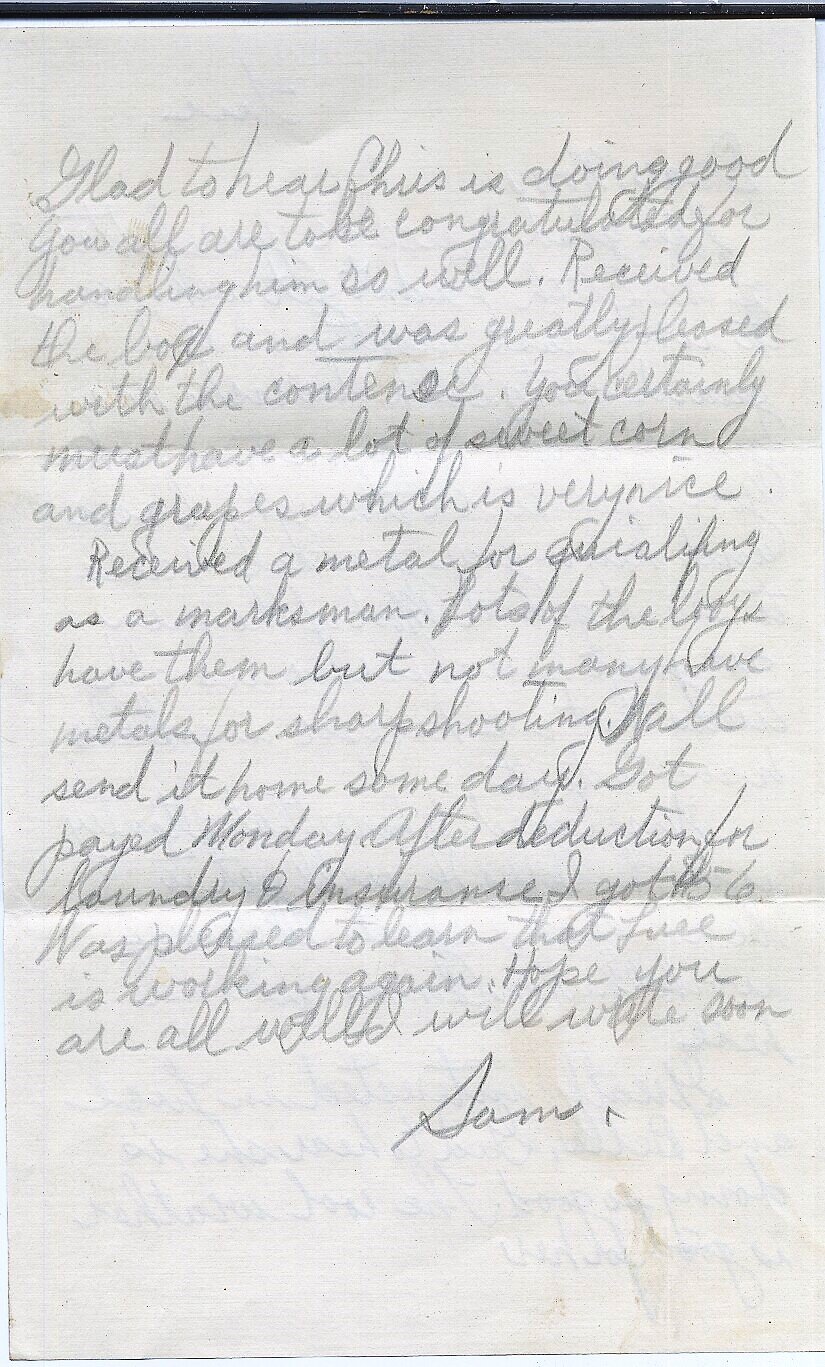 Glad to hear Chris is doing good
You all are to be congratulated for
handling him so well. Received
the box and was greatly pleased
with the contence. You certainly
must have a lot of sweet corn
and grapes which is very nice.
Received a metal for quialifing
as a marksman. Lots of the boys
have them but not many have
metals for sharpshooting. Will
send it home some day. Got
payed Monday After deduction for
laundry & Insuranse I got 56.
Was pleased to learn that
is working again. Hope you
are all well I will write soon
Sam.